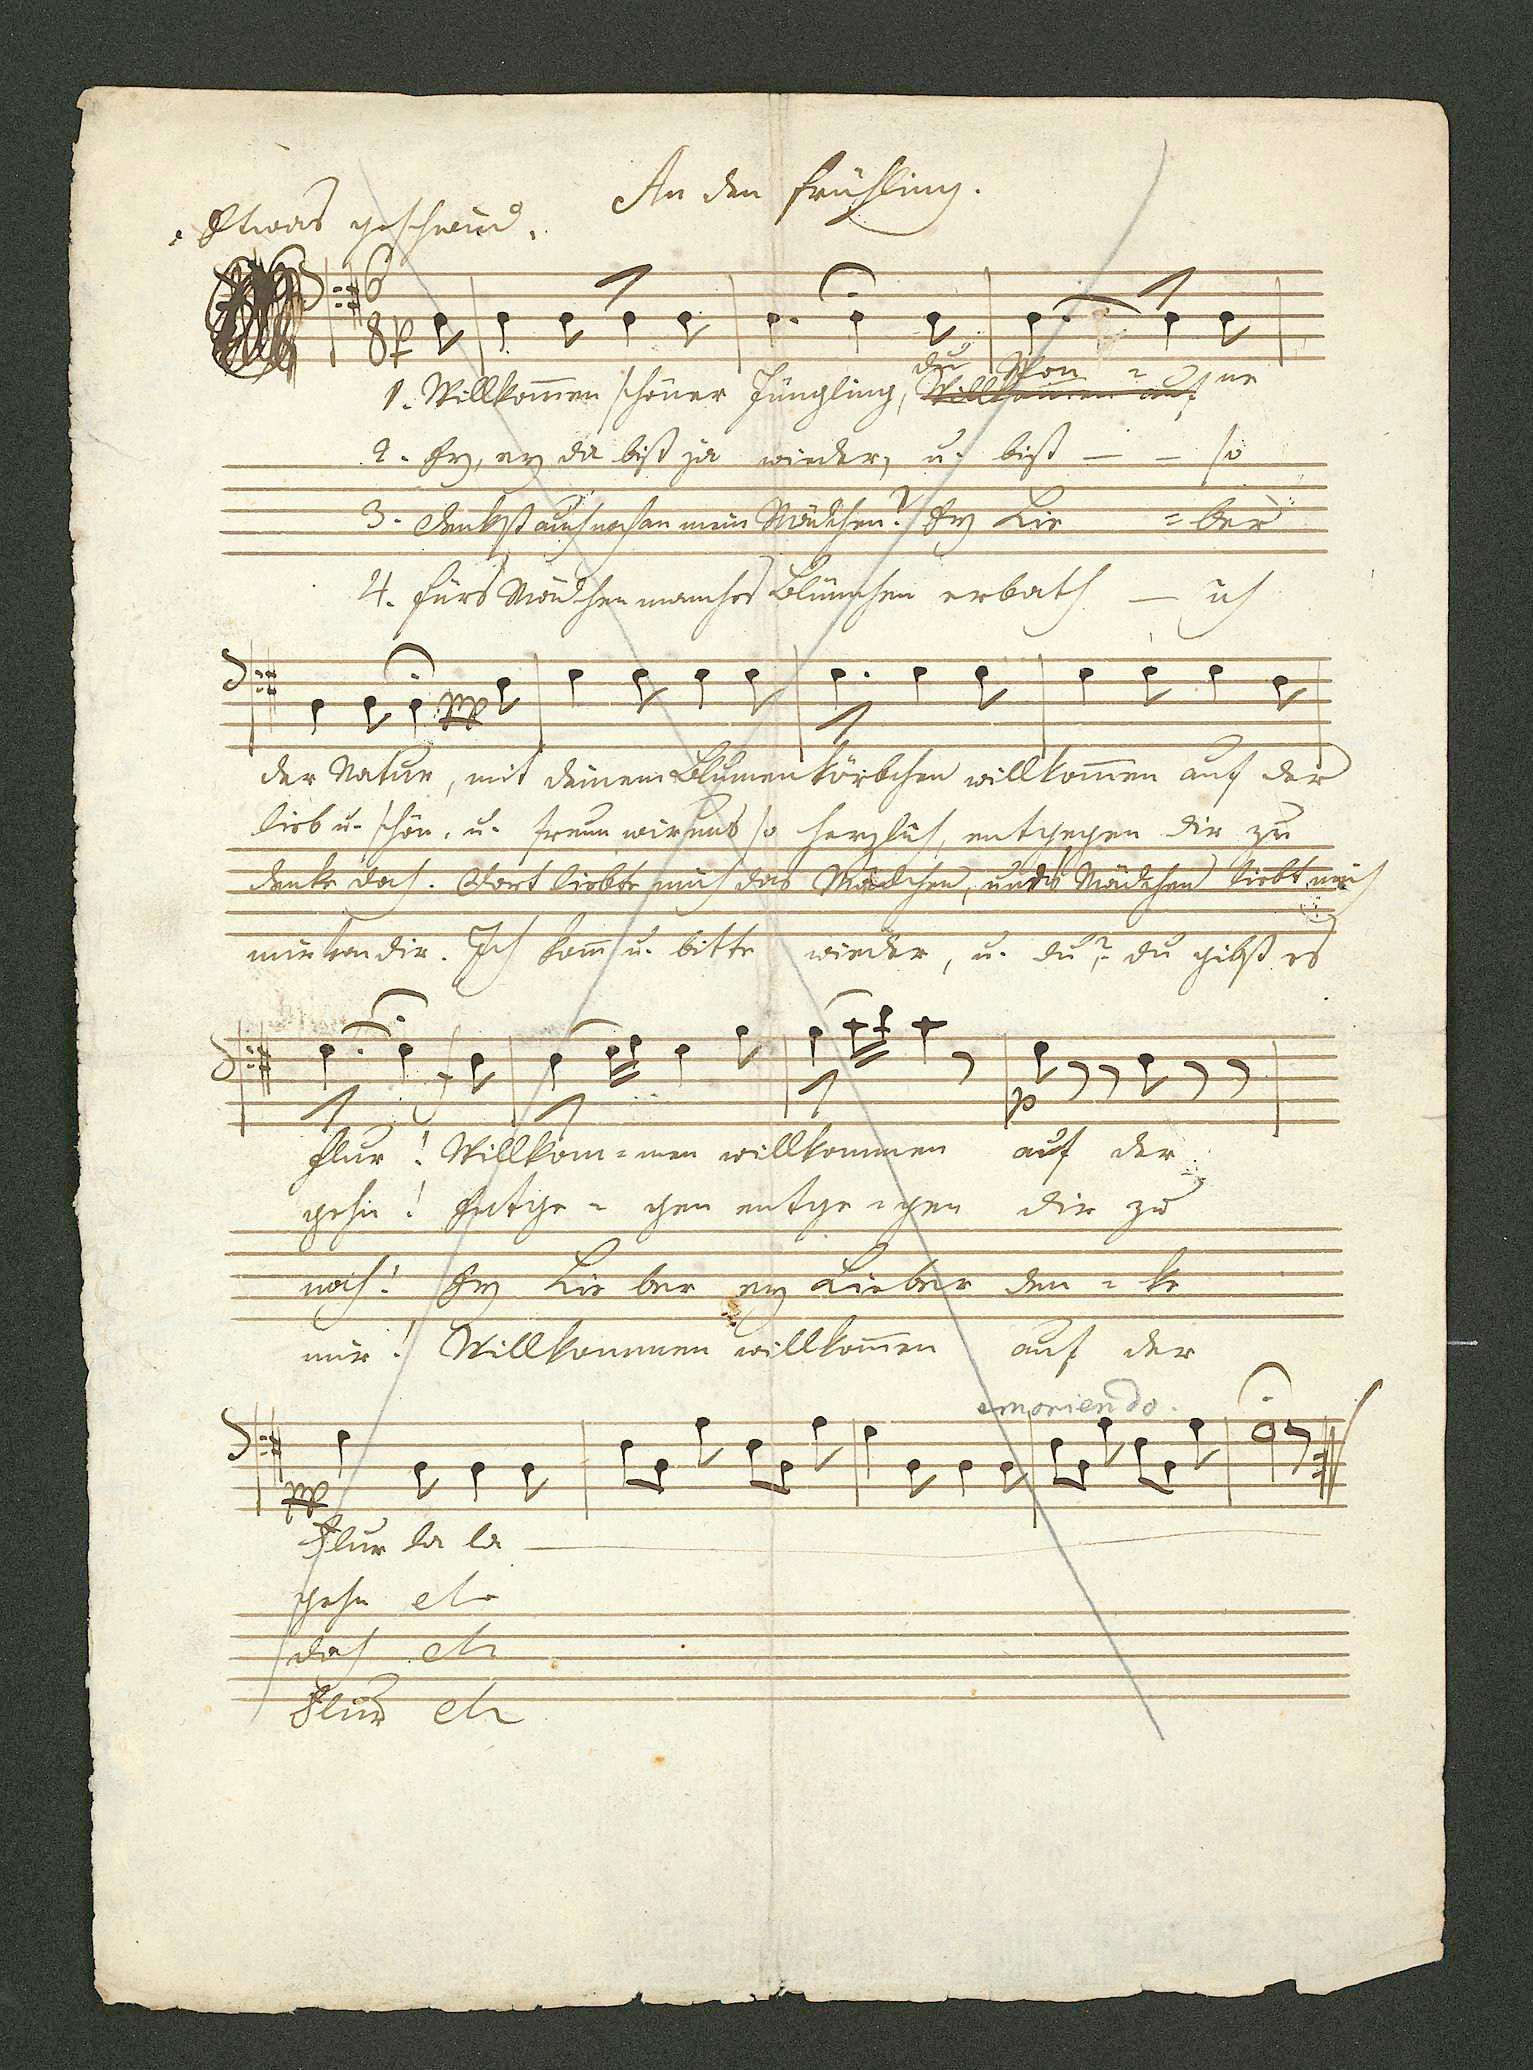 An den Frühling.
Etwas geschwind.
du Won = ne
1. Willkom̄en schöner Jüngling, Willkommen auf
2. Ey, ey da bist ja wieder, u. bist — — so
3. Denkst auch noch an mein Mädchen? Ey Lie = ber
4. Fürs Mädchen manches Blümchen erbath — ich
pp
der Natur, mit deinem Blumenkörbchen willkom̄en auf der
lieb u. schön, u. freun wir uns so herzlich, entgegen dir zu
denke doch. Dort liebte mich das Mädchen, und's Mädchen liebt mich
mir von dir. Ich kom̄ u. bitte wieder, u. du? du gibst es
p
Flur! Willkom=men willkommen auf der
gehn! Entge = gen entge = gen dir zu
noch! Ey Lie ber ey Lieber den = ke
mir! Willkommen willkom̄en auf der
emoriendo.
pp
Flur la la —
gehn etc
doch etc
Flur etc